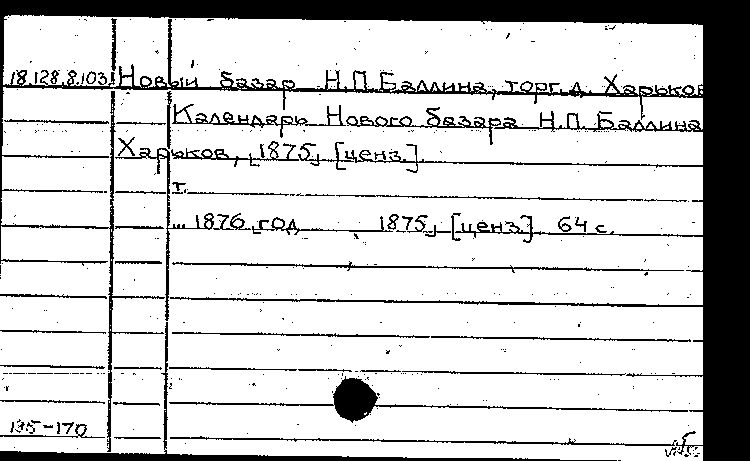 18.128.8.103. Новый базар Н.П.Баллина, торг.д. Харьков
Календарь Нового базара Н.П. Баллина
Харьков, 1875, [ценз.].
т.
... 1876 год 1875, [ценз.] 64 с.
195-170